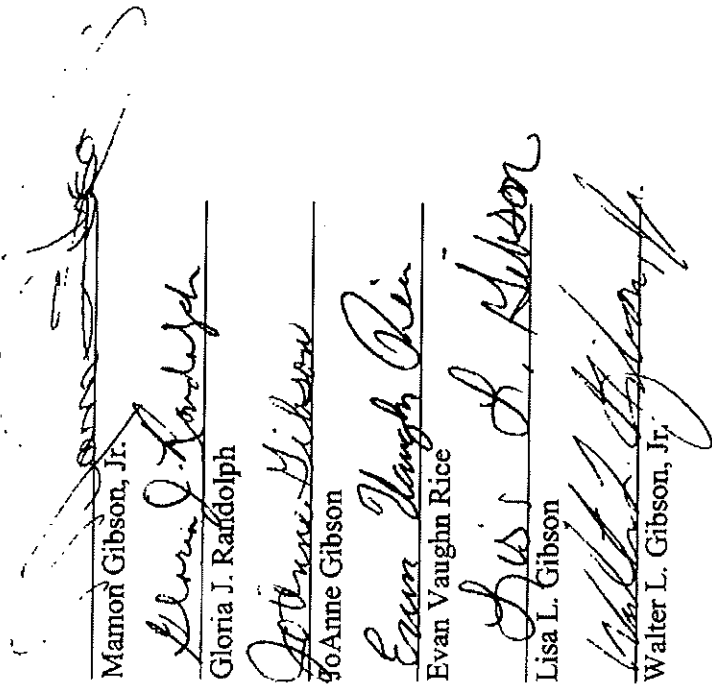 Mamon Gibson, Jr.
Gloria J. Randolph
Gloria J. Randolph
JoAnne Gibson
JoAnne Gibson
Evan Vaughn Rice
Evan Vaughn Rice
Lisa L. Gibson
Lisa L. Gibson
Walter L. Gibson, Jr.
Walter L. Gibson, Jr.